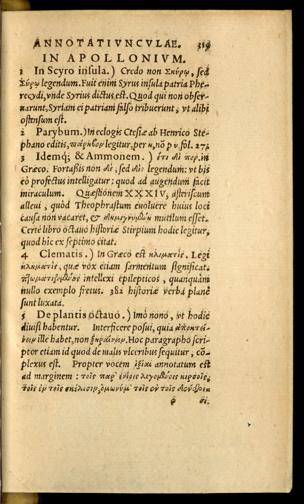 ANNOTATIVNCVLAE. 319
IN APOLLONIVM.
1 In Scyro insula.) Credo non Σκύρῳ, sed
Σύρῳ legendum. Fuit enim Syrus insula patria Phe-
recydi, vnde Syrius dictus est. Quod qui non obser-
uarunt, Syriam ei patriam falso tribuerunt, vt alibi
ostensum est.
2 Parybum.) In eclogis Ctesiæ ab Henrico Ste-
phano editis, legitur, per η, nō υ fol. 27;
3 Idemq; & Ammonem.) in
Græco. Fortaßis non sed legendum: vt bis
eò profectus intelligatur: quod ad augendum facit
miraculum. Quæstionem XXXIV, astriscum
alleui, quòd Theophrastum euoluere huius loci
causa non vacaret, & mutilum esset.
Certè libro octauo historiæ Stirpium hodie legitur,
quod hîc ex septimo citat.
4 Clematis.) In Græco est κληματὶς. Legi
quæ vox etiam sarmentum significat.
intellexi epilepticos, quanquàm
nullo exemplo fretus. 38z historiæ verba planè
sunt luxata.
5 De plantis octauo.) Imò nono, vt hodie
diuisi habentur. Interficere posui, quia
ille habet, non Hoc paragrapho scri-
ptor etiam id quod de malis vlceribus sequitur, cō-
plexus est. Propter vocem annotatum est
ad marginem: τοῖς παρ'
τοῖς